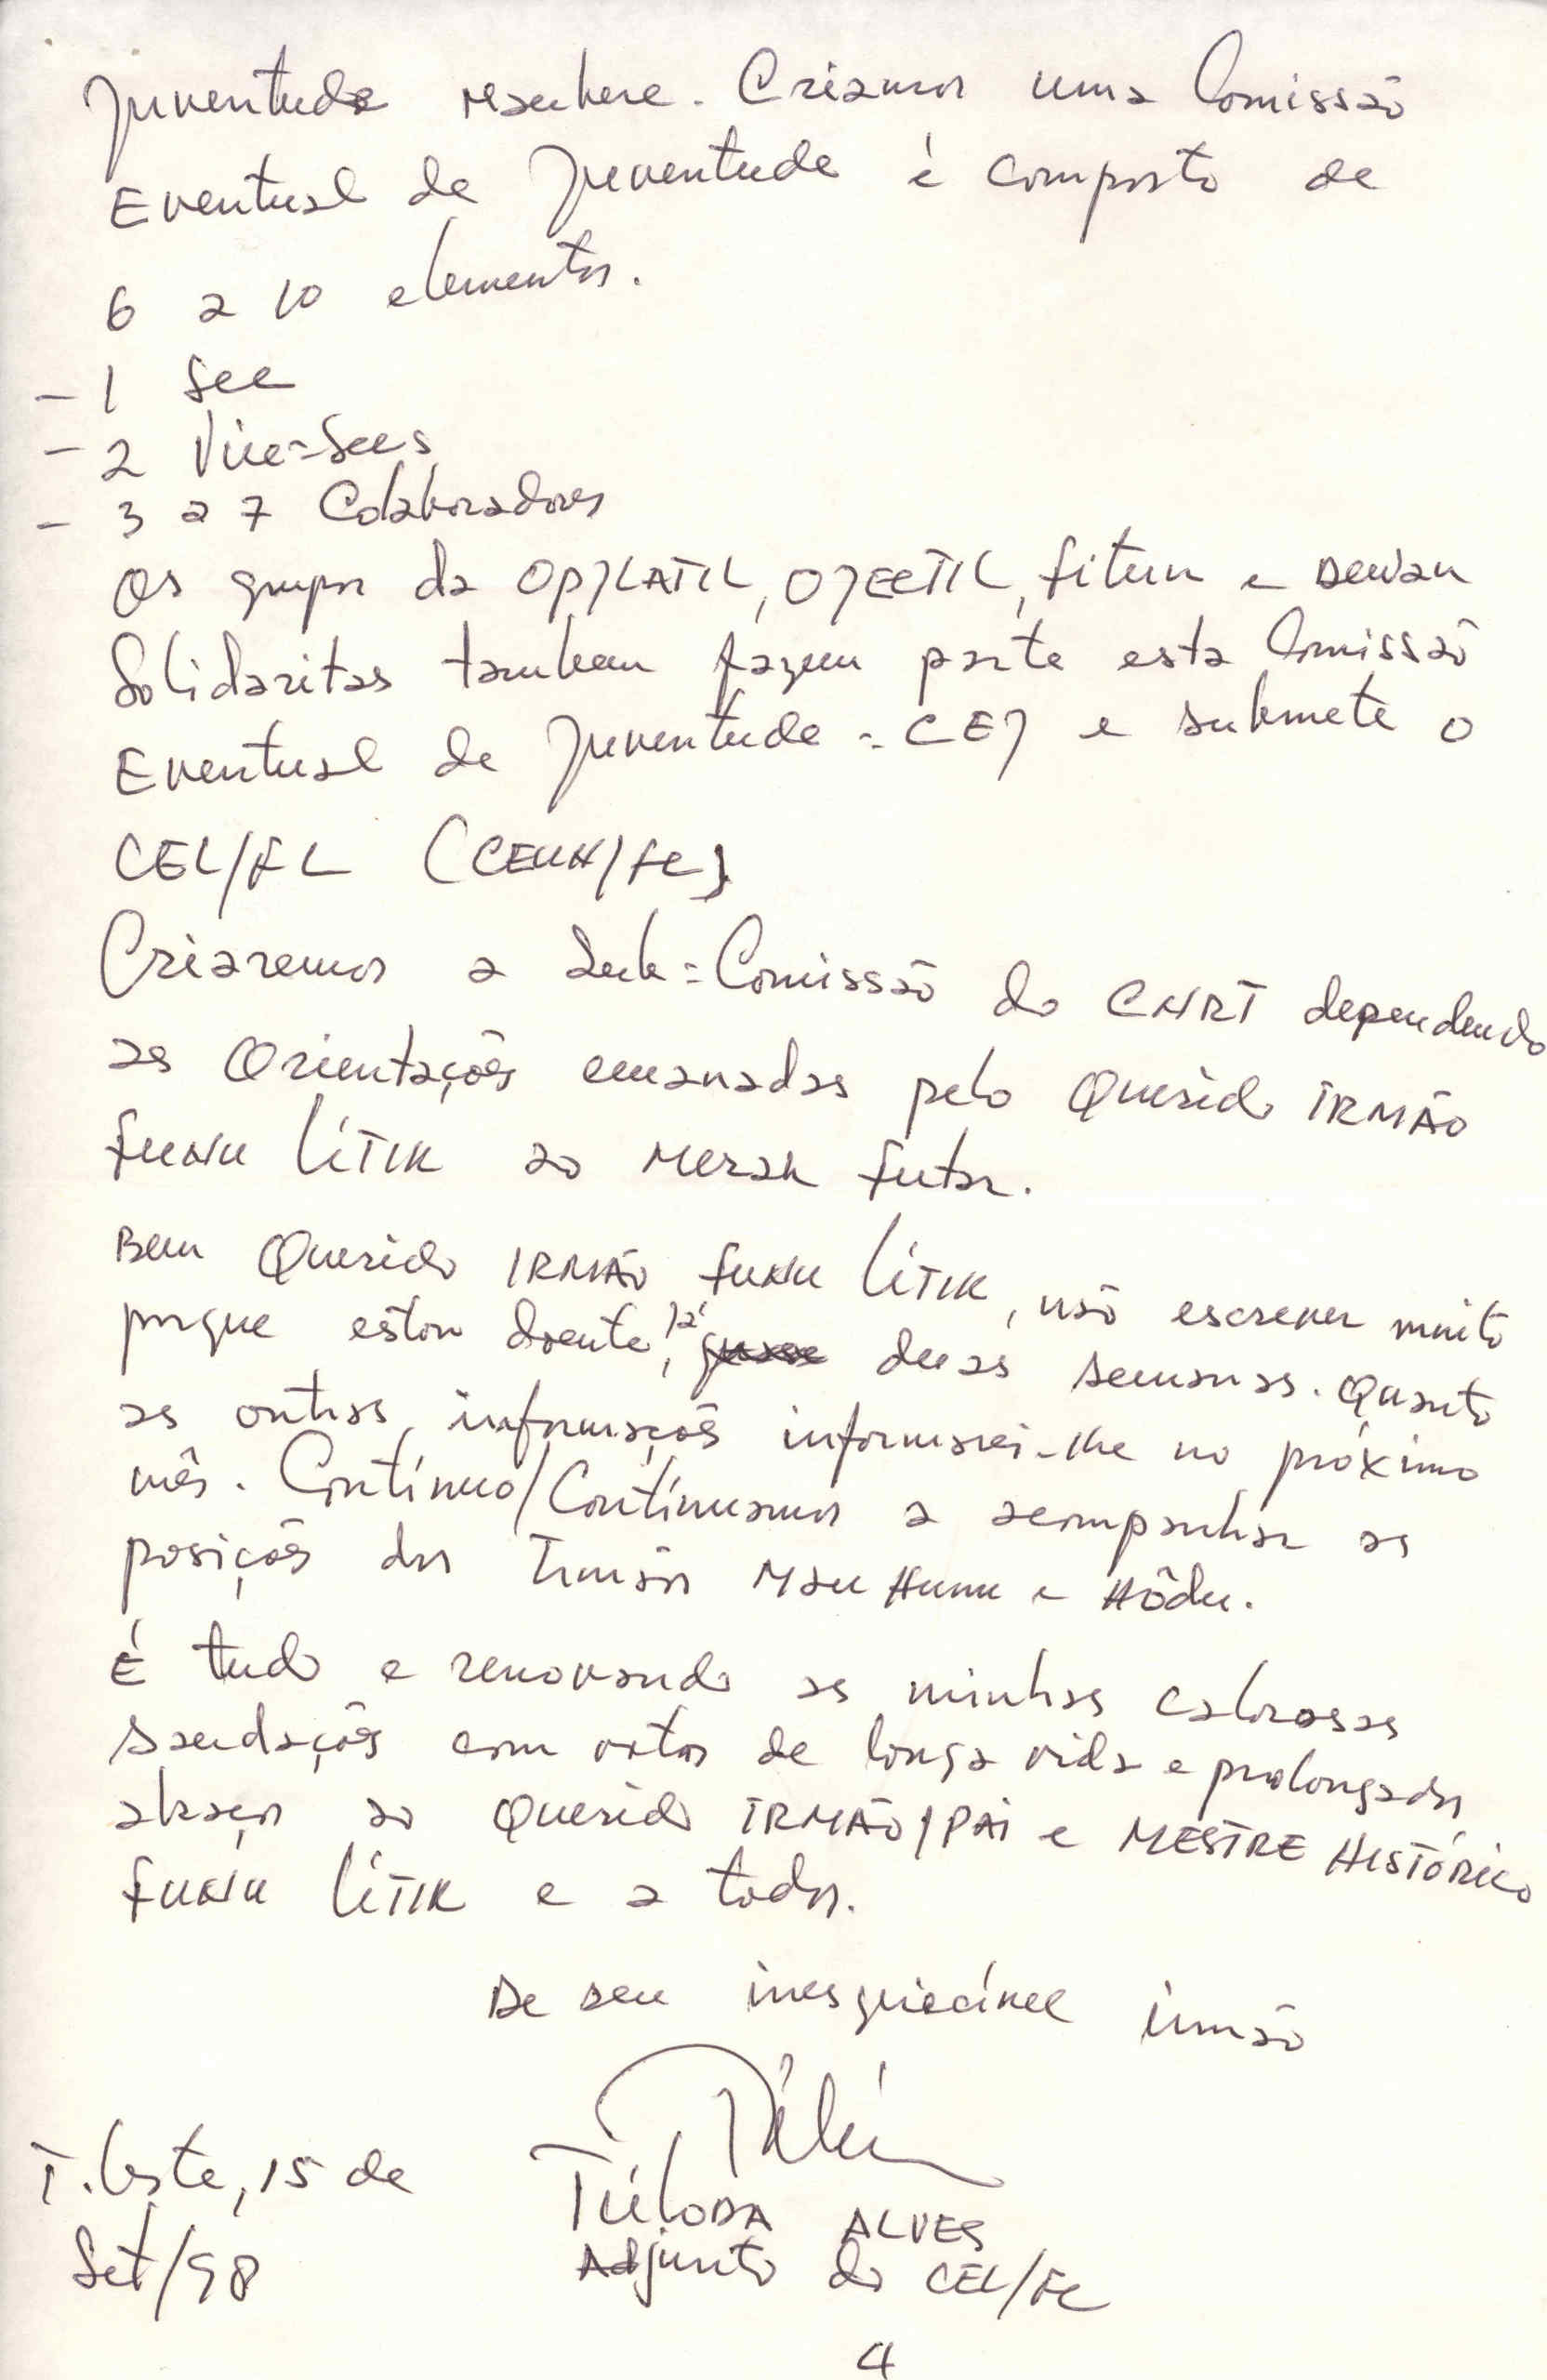 Juventude maubere. Criamos uma Comissão
Eventual de Juventude é composto de
6 a 10 elementos.
- 1 Sec
- 2 Vice-Secs
- 3 a 7 Colaboradores
Os grupos da OPJLATIL, OJECTIL, Fitun e Dewan
Solidaritas tambem fazem parte esta Comissão
Eventual de Juventude - CEJ e submete o
CEL/FL (CEUN/FC)
Criaremos a Sub-Comissão do CNRT dependendo
as Orientações emanadas pelo Querido IRMÃO
FUNU LÍTIK ao Merak Futar.
Bem Querido IRMÃO FUNU LÍTIK, não escrever muito
porque estou doente, já duas semanas. Quanto
as outras informações informarei-lhe no próximo
mês. Contínuo/Contínuamos a acompanhar as
posições dos Irmãos Mau Hunu e Hôdu.
É tudo e renovando as minhas calorosas
saudações com votos de longa vida e prolongados
abraços ao Querido IRMÃO/PAI e MESTRE HISTÓRICO
FUNU LÍTIK e a todos.
De seu inesquiecível irmão
T. Leste, 15 de
Set/98
TÚLODA ALVES
Adjunto do CEL/FL
4